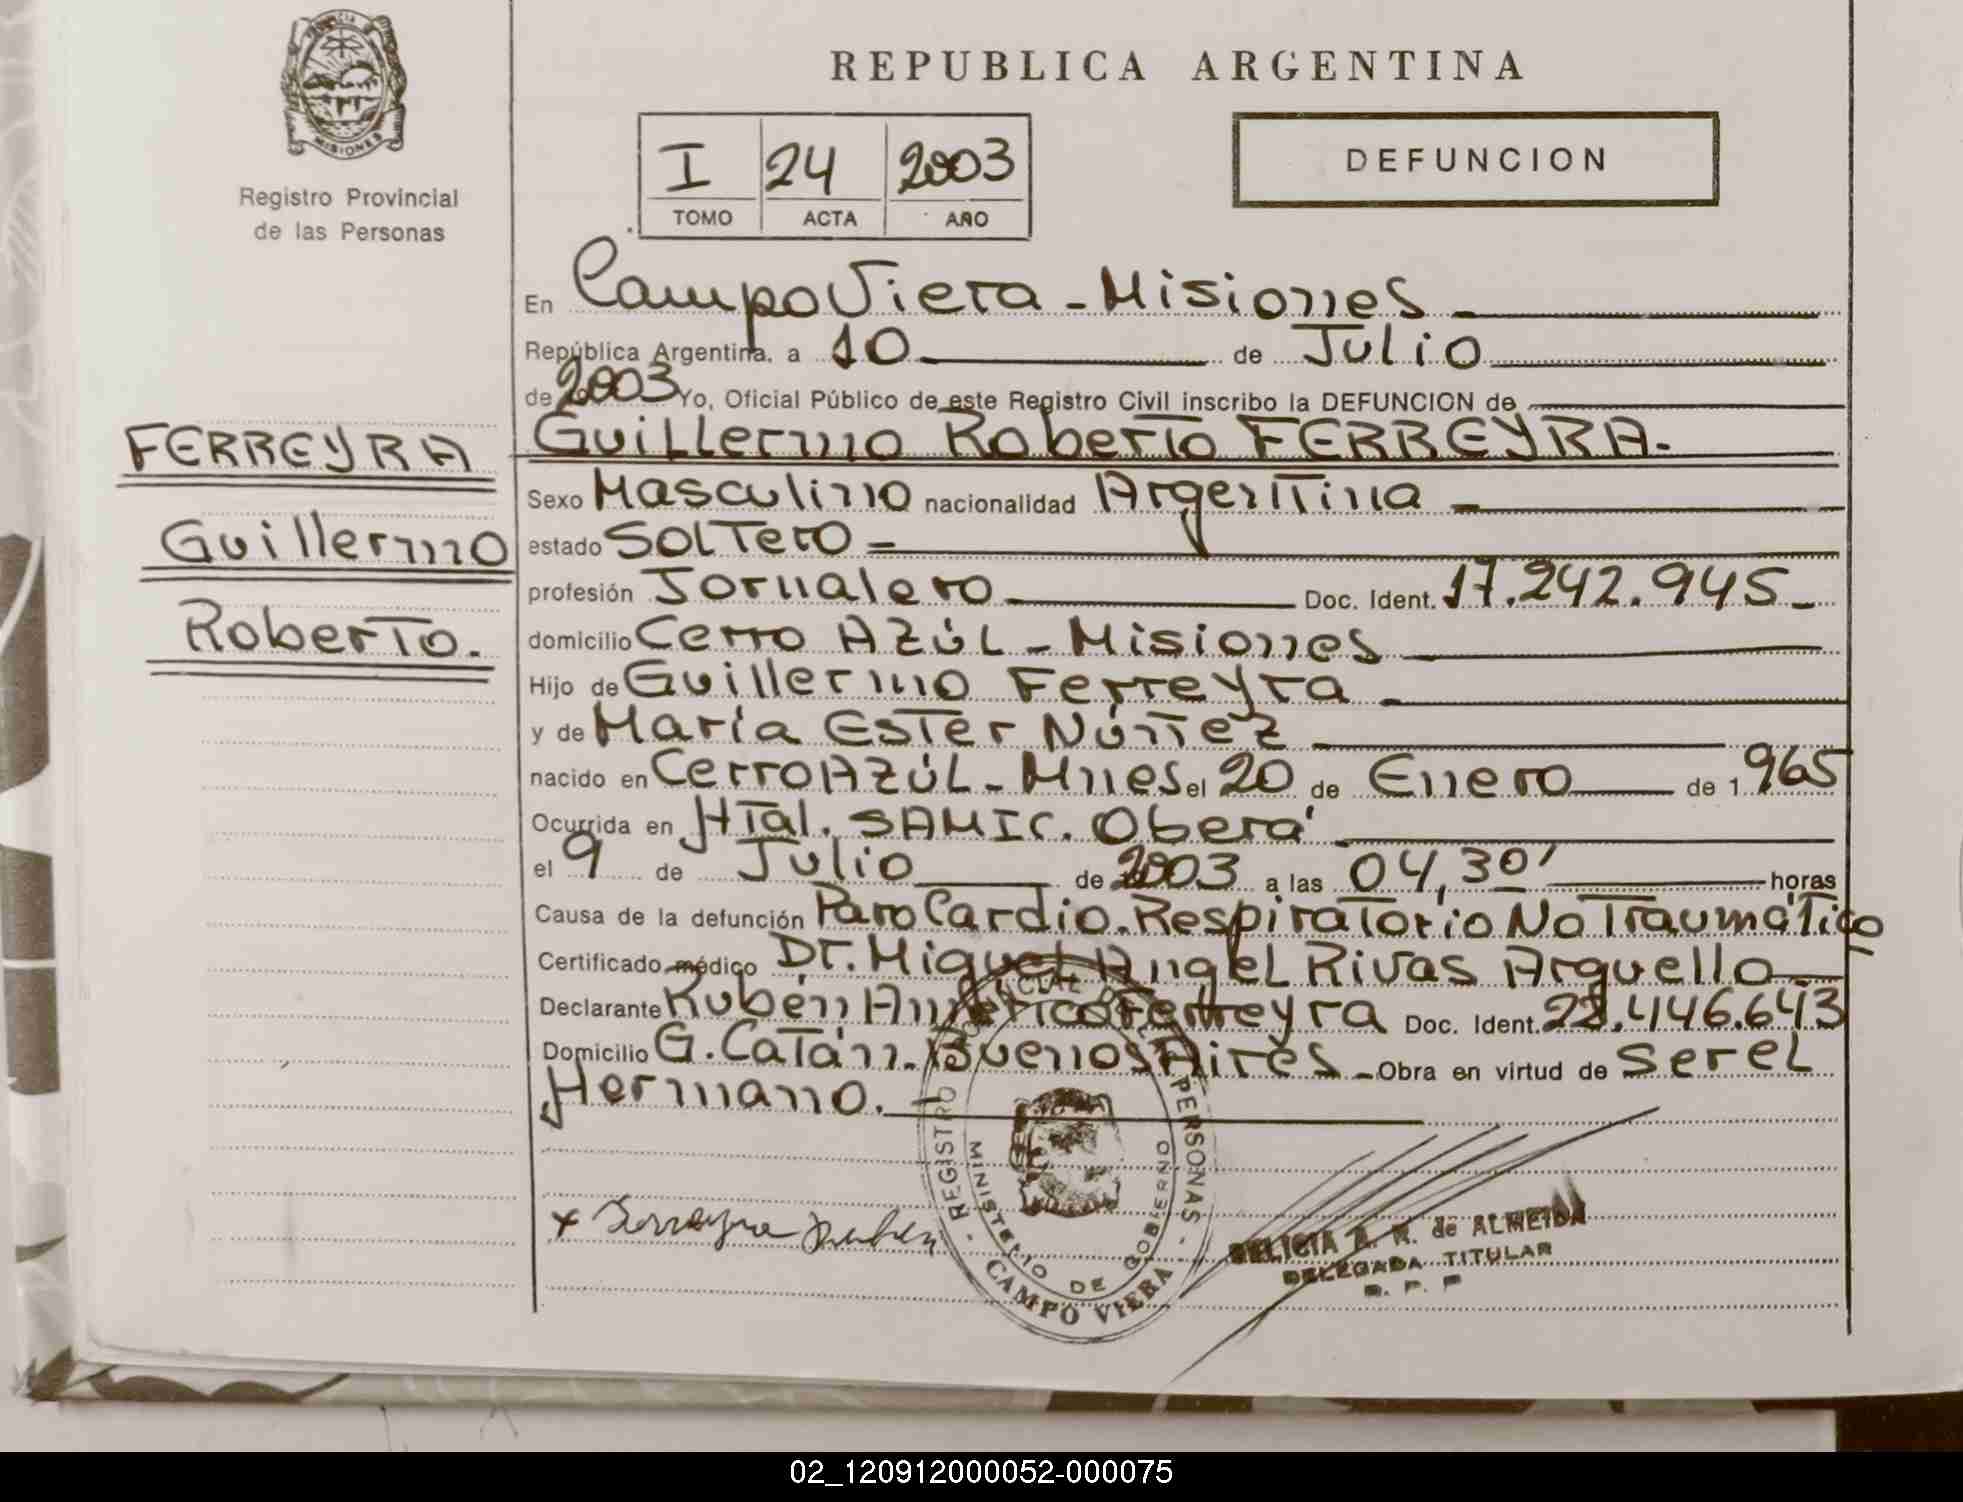 PROVINCIA DE
MISIONES
Registro Provincial
de las Personas
FERREYRA
Guillermo
Roberto.
REPUBLICA ARGENTINA
I 24 2003
TOMO ACTA AÑO
DEFUNCION
En Campo Viera - Misiones
República Argentina, a 10 de Julio
de 2003 Yo, Oficial Público de este Registro Civil inscribo la DEFUNCION de
Guillermo Roberto FERREYRA.
Sexo Masculino nacionalidad Argentina
estado Soltero
profesión Jornalero Doc. Ident. 17.242.945
domicilio Cerro Azúl - Misiones
Hijo de Guillermo Ferreyra
y de María Ester Núñez
nacido en Cerro Azúl - Mnes el 20 de Enero de 1965
Ocurrida en Htal. SAMIC. Oberá
el 9 de Julio de 2003 a las 04,30' horas
Causa de la defunción Paro Cardio. Respiratorio No Traumático
Certificado médico Dr. Miguel Angel Rivas Arguello
Declarante Rubén Américo Ferreyra Doc. Ident. 22.446.643
Domicilio G. Catán. Buenos Aires - Obra en virtud de ser el
Hermano.
REGISTRO PROVINCIAL DE LAS PERSONAS
MINISTERIO DE GOBIERNO
- CAMPO VIERA -
x Ferreyra Ruben
DELICIA A. R. de ALMEIDA
DELEGADA TITULAR
R. P. P
02_120912000052-000075